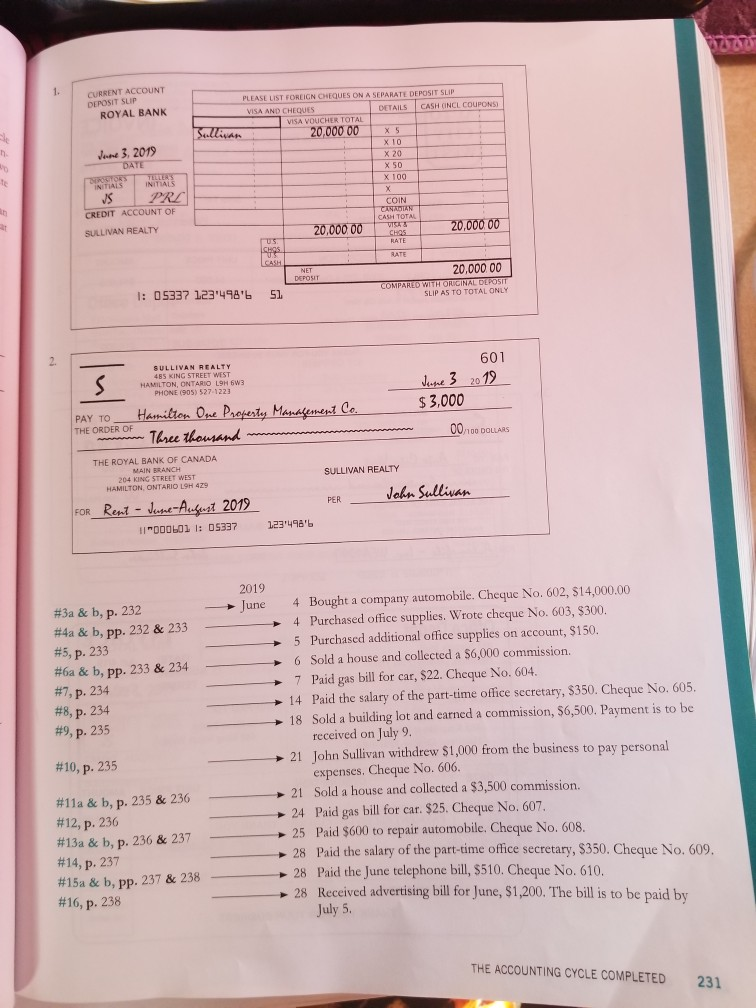 1.
CURRENT ACCOUNT
DEPOSIT SLIP
ROYAL BANK
June 3, 2019
DATE
DEPOSITOR'S INITIALS
TELLER'S INITIALS
JS PRL
CREDIT ACCOUNT OF
SULLIVAN REALTY
PLEASE LIST FOREIGN CHEQUES ON A SEPARATE DEPOSIT SLIP
VISA AND CHEQUES DETAILS CASH (INCL COUPONS)
VISA VOUCHER TOTAL
Sullivan 20,000 00 X 5
X 10
X 20
X 50
X 100
X
COIN
CANADIAN CASH TOTAL
20,000 00 VISA & CHQS 20,000 00
U.S. CHQS RATE
U.S. CASH RATE
NET DEPOSIT 20,000 00
COMPARED WITH ORIGINAL DEPOSIT
SLIP AS TO TOTAL ONLY
|: 05337 123'498'6 51
2.
S
SULLIVAN REALTY
485 KING STREET WEST
HAMILTON, ONTARIO L9H 6W3
PHONE (905) 527-1223
601
June 3 20 19
PAY TO THE ORDER OF Hamilton One Property Management Co. $ 3,000
Three thousand 00/100 DOLLARS
THE ROYAL BANK OF CANADA
MAIN BRANCH
204 KING STREET WEST
HAMILTON, ONTARIO L9H 4Z9
SULLIVAN REALTY
FOR Rent - June-August 2019 PER John Sullivan
||"000601 |: 05337 123'498'6
2019
#3a & b, p. 232 June 4 Bought a company automobile. Cheque No. 602, $14,000.00
#4a & b, pp. 232 & 233 4 Purchased office supplies. Wrote cheque No. 603, $300.
#5, p. 233 5 Purchased additional office supplies on account, $150.
#6a & b, pp. 233 & 234 6 Sold a house and collected a $6,000 commission.
#7, p. 234 7 Paid gas bill for car, $22. Cheque No. 604.
#8, p. 234 14 Paid the salary of the part-time office secretary, $350. Cheque No. 605.
#9, p. 235 18 Sold a building lot and earned a commission, $6,500. Payment is to be
received on July 9.
#10, p. 235 21 John Sullivan withdrew $1,000 from the business to pay personal
expenses. Cheque No. 606.
#11a & b, p. 235 & 236 21 Sold a house and collected a $3,500 commission.
#12, p. 236 24 Paid gas bill for car. $25. Cheque No. 607.
#13a & b, p. 236 & 237 25 Paid $600 to repair automobile. Cheque No. 608.
#14, p. 237 28 Paid the salary of the part-time office secretary, $350. Cheque No. 609.
#15a & b, pp. 237 & 238 28 Paid the June telephone bill, $510. Cheque No. 610.
#16, p. 238 28 Received advertising bill for June, $1,200. The bill is to be paid by
July 5.
THE ACCOUNTING CYCLE COMPLETED 231